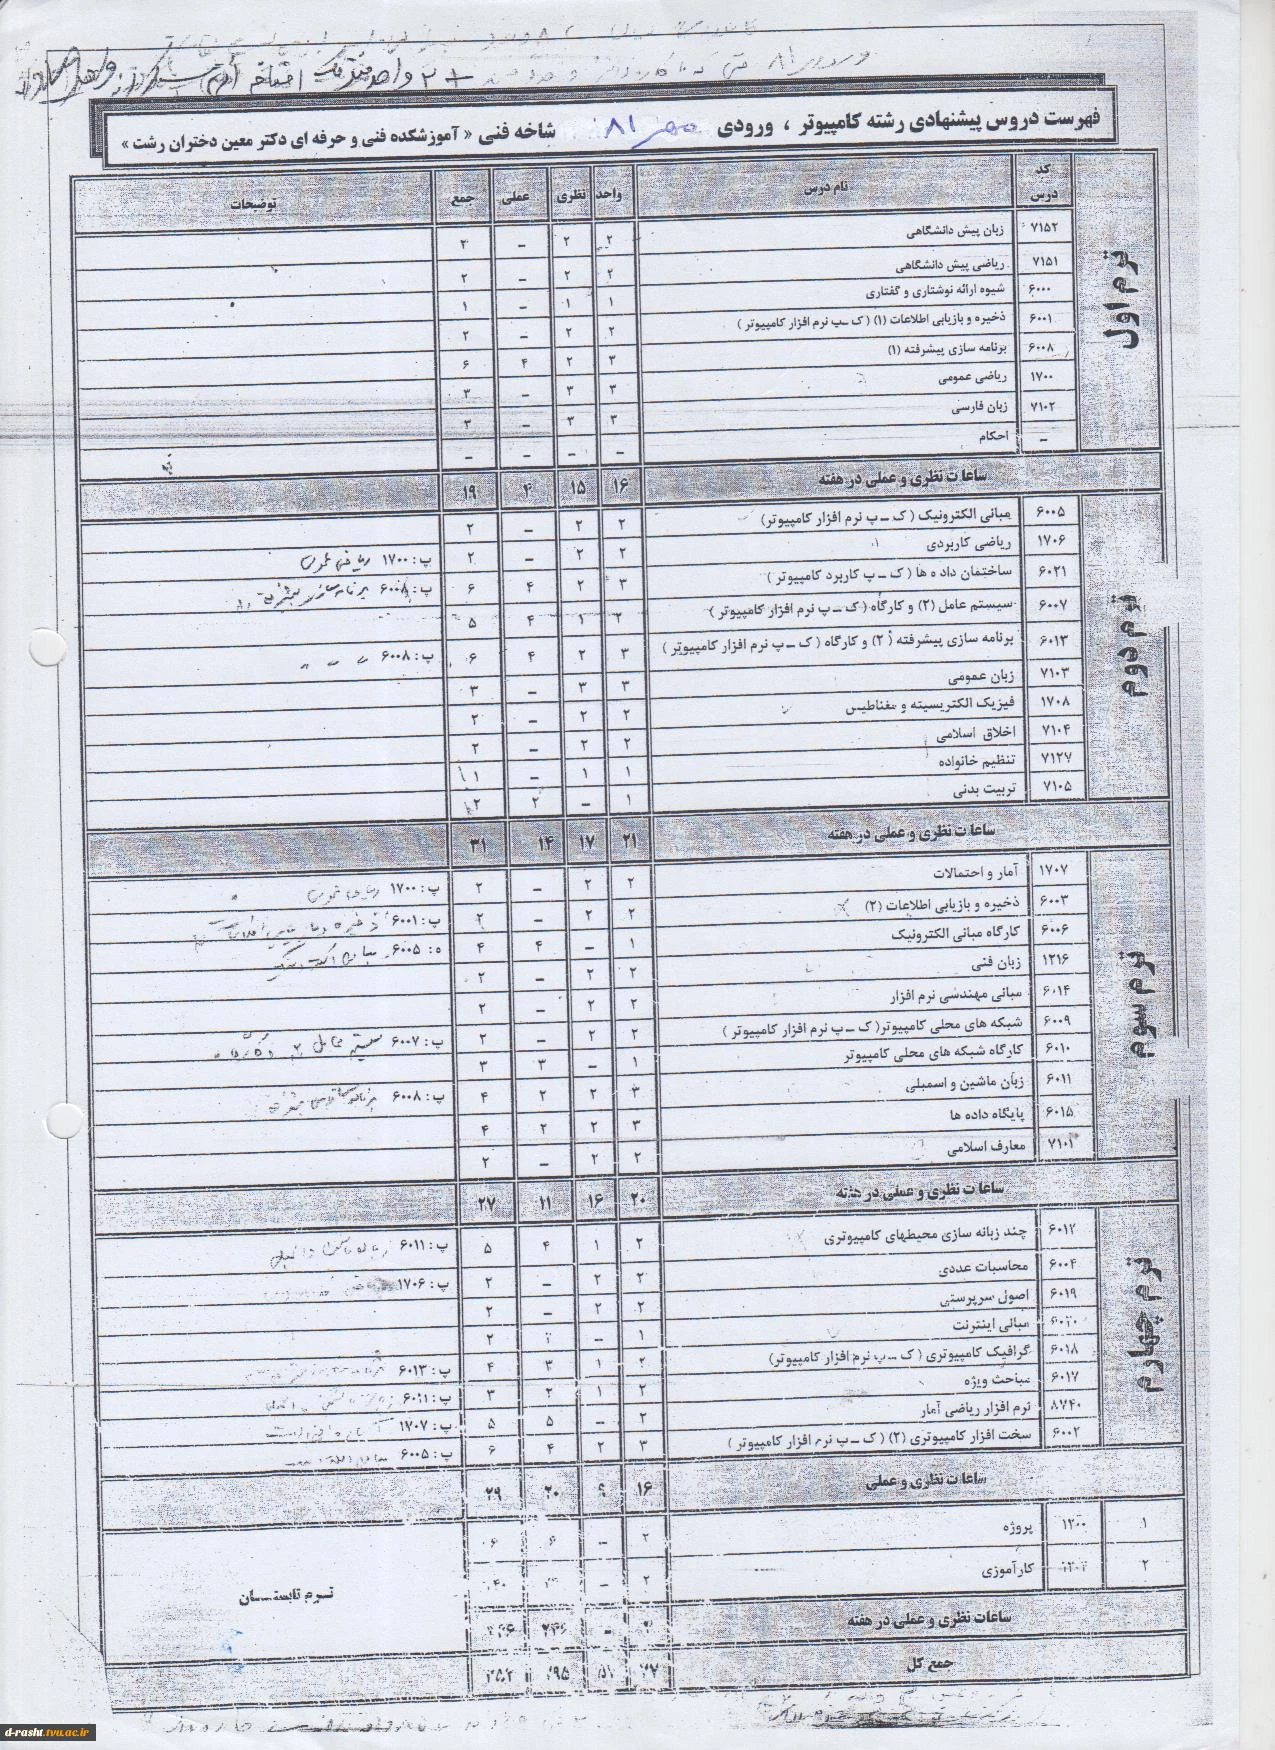 + ۲۰ واحد
فهرست دروس پیشنهادی رشته کامپیوتر ، ورودی مهر ۸۱ شاخه فنی « آموزشکده فنی و حرفه ای دکتر معین دختران رشت »
کد درس نام درس واحد نظری عملی جمع توضیحات
ترم اول
۷۱۵۲ زبان پیش دانشگاهی ۲ ۲ – ۲
۷۱۵۱ ریاضی پیش دانشگاهی ۲ ۲ – ۲
۶۰۰۰ شیوه ارائه نوشتاری و گفتاری ۱ ۱ – ۱
۶۰۰۱ ذخیره و بازیابی اطلاعات (۱) ( ک ـ پ نرم افزار کامپیوتر ) ۲ ۲ – ۲
۶۰۰۸ برنامه سازی پیشرفته (۱) ۳ ۲ ۴ ۶
۱۷۰۰ ریاضی عمومی ۳ ۳ – ۳
۷۱۰۲ زبان فارسی ۳ ۳ – ۳
– احکام – – – –
ساعات نظری و عملی در هفته ۱۶ ۱۵ ۴ ۱۹
ترم دوم
۶۰۰۵ مبانی الکترونیک ( ک ـ پ نرم افزار کامپیوتر) ۲ ۲ – ۲
۱۷۰۶ ریاضی کاربردی ۲ ۲ – ۲ پ : ۱۷۰۰ ریاضی عمومی
۶۰۲۱ ساختمان داده ها ( ک ـ پ کاربرد کامپیوتر ) ۳ ۲ ۴ ۶ پ : ۶۰۰۸ برنامه سازی پیشرفته
۶۰۰۷ سیستم عامل (۲) و کارگاه ( ک ـ پ نرم افزار کامپیوتر ) ۲ ۱ ۴ ۵
۶۰۱۳ برنامه سازی پیشرفته ( ۲) و کارگاه ( ک ـ پ نرم افزار کامپیوتر ) ۳ ۲ ۴ ۶ پ : ۶۰۰۸ 〃 〃 〃
۷۱۰۳ زبان عمومی ۳ ۳ – ۳
۱۷۰۸ فیزیک الکتریسیته و مغناطیس ۲ ۲ – ۲
۷۱۰۴ اخلاق اسلامی ۲ ۲ – ۲
۷۱۲۷ تنظیم خانواده ۱ ۱ – ۱
۷۱۰۵ تربیت بدنی ۱ – ۲ ۲
ساعات نظری و عملی در هفته ۲۱ ۱۷ ۱۴ ۳۱
ترم سوم
۱۷۰۷ آمار و احتمالات ۲ ۲ – ۲ پ : ۱۷۰۰ ریاضی عمومی
۶۰۰۳ ذخیره و بازیابی اطلاعات (۲) ۲ ۲ – ۲ پ : ۶۰۰۱ ذخیره و بازیابی اطلاعات
۶۰۰۶ کارگاه مبانی الکترونیک ۱ – ۴ ۴ ه : ۶۰۰۵ مبانی الکترونیک
۱۲۱۶ زبان فنی ۲ ۲ – ۲
۶۰۱۴ مبانی مهندسی نرم افزار ۲ ۲ – ۲
۶۰۰۹ شبکه های محلی کامپیوتر( ک ـ پ نرم افزار کامپیوتر ) ۲ ۲ – ۲ پ : ۶۰۰۷ سیستم عامل ۲ و کارگاه
۶۰۱۰ کارگاه شبکه های محلی کامپیوتر ۱ – ۳ ۳
۶۰۱۱ زبان ماشین و اسمبلی ۳ ۲ ۲ ۴ پ : ۶۰۰۸ برنامه سازی پیشرفته
۶۰۱۵ پایگاه داده ها ۳ ۲ ۲ ۴
۷۱۰۱ معارف اسلامی ۲ ۲ – ۲
ساعات نظری و عملی در هفته ۲۰ ۱۶ ۱۱ ۲۷
ترم چهارم
۶۰۱۲ چند زبانه سازی محیطهای کامپیوتری ۲ ۱ ۴ ۵ پ : ۶۰۱۱
۶۰۰۴ محاسبات عددی ۲ ۲ – ۲ پ : ۱۷۰۶
۶۰۱۹ اصول سرپرستی ۲ ۲ – ۲
۶۰۲۰ مبانی اینترنت ۱ – ۲ ۲
۶۰۱۸ گرافیک کامپیوتری ( ک ـ پ نرم افزار کامپیوتر) ۲ ۱ ۳ ۴ پ : ۶۰۱۳
۶۰۱۷ مباحث ویژه ۲ ۱ ۲ ۳ پ : ۶۰۱۱
۸۷۴۰ نرم افزار ریاضی آمار ۲ – ۵ ۵ پ : ۱۷۰۷
۶۰۰۲ سخت افزار کامپیوتری (۲) ( ک ـ پ نرم افزار کامپیوتر ) ۳ ۲ ۴ ۶ پ : ۶۰۰۵
ساعات نظری و عملی ۱۶ ۹ ۲۰ ۲۹
۱ ۱۲۰۰ پروژه ۲ – ۶ ۶
۲ کارآموزی ۲ –
ترم تابستان
ساعات نظری و عملی در هفته
جمع کل
d-rasht.tvu.ac.ir